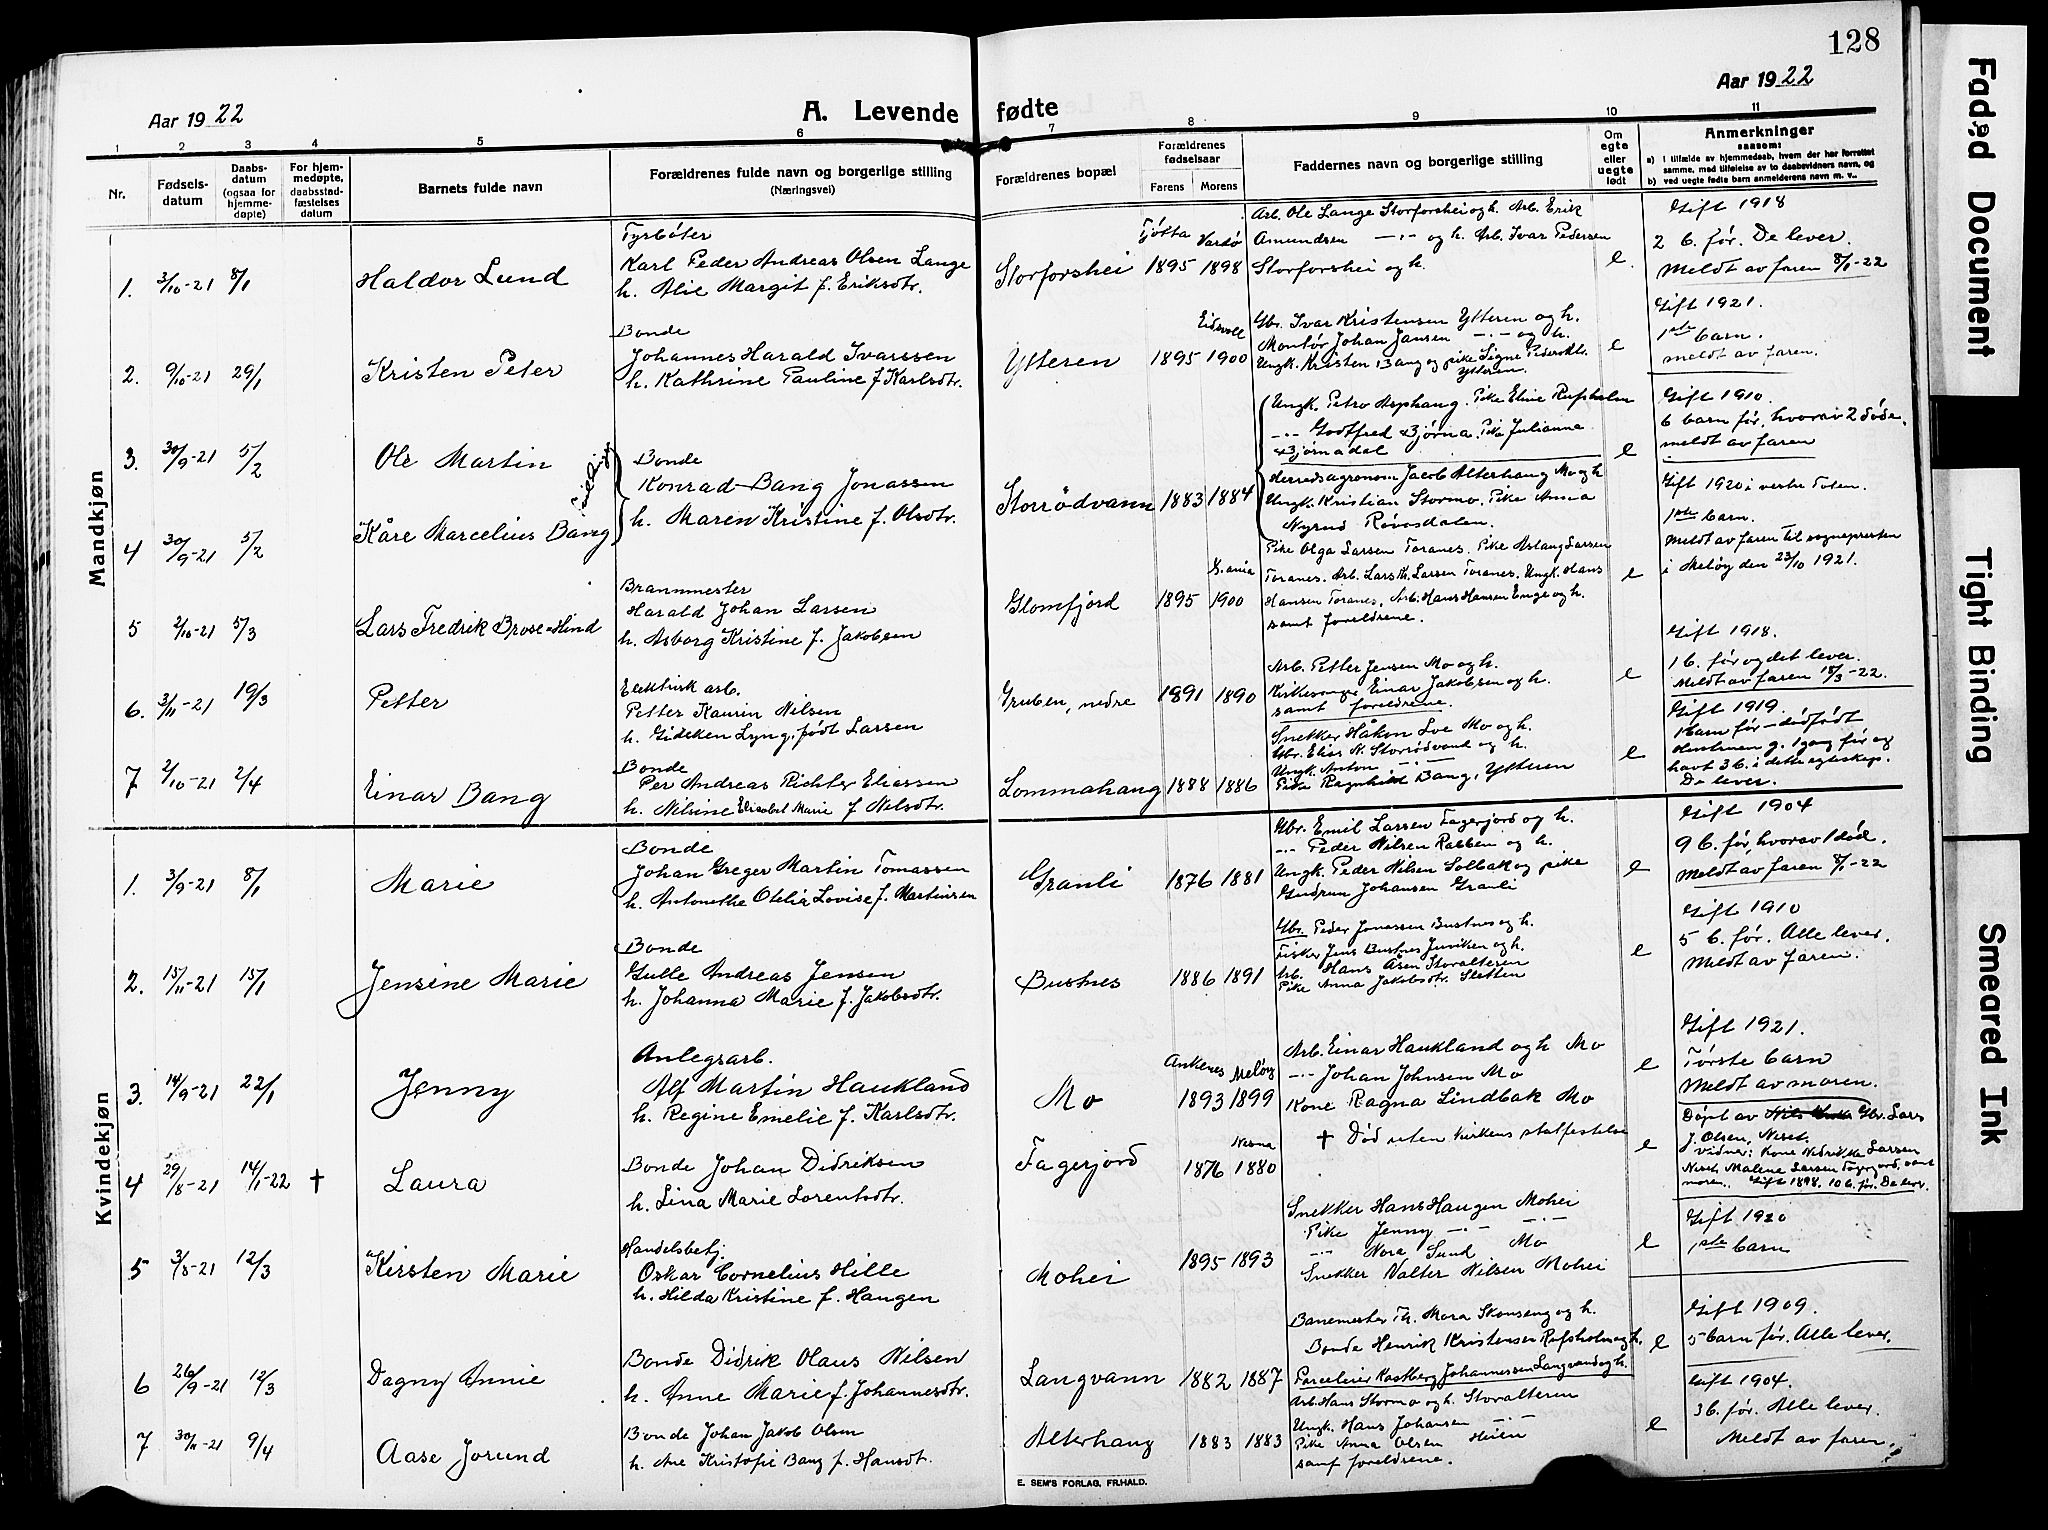 128
Aar 1922
A. Levende fødte
Aar 1922
1 2 3 4 5 6 7 8 9 10 11
Nr.
Fødsels-
datum
Daabs-
datum
(ogsaa for
hjemme-
døpte)
For hjem-
medøpte,
daabsstad-
fæstelses
datum
Barnets fulde navn
Forældrenes fulde navn og borgerlige stilling
(Næringsvei)
Forældrenes bopæl
Forældrenes
fødselsaar
Farens Morens
Faddernes navn og borgerlige stilling
Om
egte
eller
uegte
født
Anmerkninger
saasom:
a) I tilfælde av hjemmedaab, hvem der har forrettet
samme, med tilføielse av to daabsvidners navn, og
b) ved uegte fødte barn anmelderens navn m. v..
Mandkjøn
1. 3/10-21 8/1 Haldor Lund
Fyrbøter
Karl Peder Andreas Olsen Lange
h. Alie Margit f. Eriksdtr.
Storforshei
Tjøtta Vardø
1895 1898
Arb. Ole Lange Storforshei og h. Arb. Erik
Amundsen —"— og h. Arb. Ivar Pedersen
Storforshei og h.
e.
Gift 1918
2 b. før. De lever.
Meldt av faren 8/1-22
2. 9/10-21 29/1 Kristen Peter
Bonde
Johannes Harald Ivarssen
h. Kathrine Pauline f Karlsdtr.
Ytteren
Eidsvoll
1895 1900
Gbr. Ivar Kristensen Ytteren og h.
Montør Johan Jansen —"— og h.
Ungk. Kristen Bang og pike Signe Pedersdtr.
Ytteren.
e
Gift 1921.
1ste barn.
meldt av faren.
3. 30/9-21 5/2 Ole Martin
Tvillinger
4 30/9-21 5/2 Kåre Marcelius Bang
Bonde
Konrad Bang Jonassen
h. Maren Kristine f. Olsdtr.
Storrødvann 1883 1884
Ungk. Petro Asphaug. Pike Eline Rufsholm
—"— Godtfred Bjørna. Pike Julianna
Bjørnådal
Herredsagronom Jacob Alterhaug Mo og h
Ungk. Kristian Stormo. Pike Anna
Nyrud Røvasdalen.
e
Gift 1910.
6 barn før, hvorav 2 døde.
meldt av faren
5 2/10-21 5/3 Lars Fredrik Brose-Hind
Brannmester
Harald Johan Larsen
h. Asborg Kristine f. Jakobsen
Glomfjord
K.ania
1895 1900
Pike Olga Larsen Toranes. Pike Aslaug Larsen
Toranes. Arb. Lars K. Larsen Toranes. Ungk. Hans
Hansen Toranes, Arb. Hans Hansen Enge og h.
samt foreldrene.
e
Gift 1920 i vestre Toten.
1ste barn.
Meldt av faren til sognepresten
i Meløy den 23/10 1921.
6. 3/11-21 19/3 Petter
Elektrisk arb.
Petter Kaurin Nilsen
h. Gideken Lyng, født Larsen
Gruben, nedre 1891 1890
Arb. Petter Jensen Mo og h.
Kirkesanger Einar Jakobsen og h.
samt foreldrene.
e
Gift 1918.
1 b. før og det lever.
Meldt av faren 18/3-22.
7 2/10-21 2/4 Einar Bang
Bonde
Per Andreas Richter Eliassen
h. Nilsine Elisabet Marie f Nilsdtr.
Lommahaug 1888 1886
Snekker Håkon Lve Mo og h.
Gbr. Elias N. Storrødvand og h.
Ungk. Anton —"—
Pike Ragnhild Bang, Ytteren
e
Gift 1919.
1 barn før - dødfødt
Hustruen g. 1 gang før og
havt 3 b. i dette egteskap.
De lever.
Kvindekjøn
1. 3/9-21 8/1 Marie
Bonde
Johan Greger Martin Tomassen
h. Antonethe Otelia Lovise f. Martinsen
Granli 1876 1881
Gbr. Emil Larsen Fagerjord og h.
—"— Peder Nilsen Rabben og h.
Ungk. Peder Nilsen Solbak og pike
Gudrun Johansen Granli
e
Gift 1904
9 b. før, hvorav 1 død.
Meldt av faren 8/1-22
2. 15/11-21 15/1 Jensine Marie
Bonde
Gulle Andreas Jensen
h. Johanna Marie f. Jakobsdtr.
Bustnes 1886 1891
Gbr. Peder Jonassen Bustnes og h.
Fisker Jens Bustnes Junviken og h.
Arb. Hans Åsen Storalteren
Pike Anna Jakobsdtr. Sletten
e
Gift 1910
5 b. før. Alle lever.
Meldt av faren.
3. 14/9-21 22/1 Jenny
Anlegsarb.
Alf Martin Haukland
h. Regine Emelie f. Karlsdtr.
Mo
Ankenes Meløy
1893 1899
Arb. Einar Haukland og h Mo
—"— Johan Johnsen Mo
Kone Ragna Lindbak Mo
e
Gift 1921.
Første barn
Meldt av moren.
4 29/8-21 14/1-22 † Laura
Bonde Johan Didriksen
h. Lina Marie Lorentsdtr.
Fagerjord
Nesna
1876 1880
† Død uten kirkens stadfestelse
e
Døpt av Gbr. Lars
J. Olsen, Neset.
Vidner: Kone Nidrikke Larssen
Neset, Malene Larsen Fagerjord, samt
moren. Gift 1898. 10 b. før. De lever.
5 3/8-21 12/3 Kirsten Marie
Handelsbetj.
Oskar Cornelius Hille
h. Hilda Kristine f. Haugen
Mohei 1895 1893
Snekker Hans Haugen Mohei
Pike Jenny —"— —"—
—"— Nora Sund Mo
Snekker Valter Nilsen Mohei
e
Gift 1920
1ste barn
6 26/9-21 12/3 Dagny Annie
Bonde Didrik Olaus Nilsen
h. Anne Marie f. Johannesdtr.
Langvann 1882 1887
Banemester Th. Mora Skonseng og h.
Bonde Henrik Kristensen Rufsholm og h.
Parcelleier Kastberg Johannessen Langvand og h.
e
Gift 1909.
5 barn før. Alle lever.
7 30/11-21 9/4 Aase Jorund
Bonde Johan Jakob Olsen
h. Ane Kristofie Bang f. Hansdt.
Alterhaug 1883 1883
Arb. Hans Stormo og h. Storalteren
Ungk. Hans Johansen —"—
Pike Anna Olsen Heien
samt foreldrene.
e
Gift 1904.
3 b. før. Alle lever.
Meldt av faren.
E. SEM'S FORLAG, FR.HALD.
Faded Document
Tight Binding
Smeared Ink